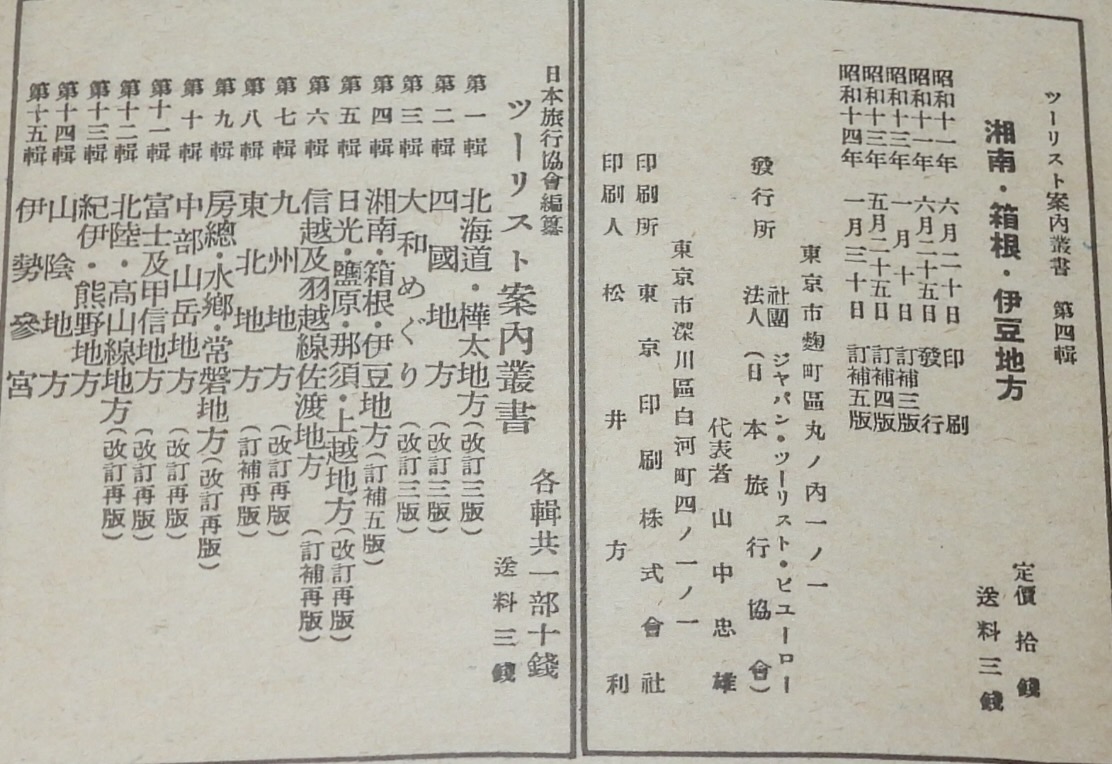 ツーリスト案內叢書 第四輯
湘南・箱根・伊豆地方
定價拾錢
送料三錢
昭和十一年六月二十日印刷
昭和十一年六月二十五日發行
昭和十三年一月十日訂補三版
昭和十三年五月二十五日訂補四版
昭和十四年一月三十日訂補五版
東京市麴町區丸ノ內一ノ一
發行所 社團法人 ジヤパン・ツーリスト・ビユーロー(日本旅行協會)
代表者 山中忠雄
東京市深川區白河町四ノ一ノ一
印刷所 東京印刷株式會社
印刷人 松井方利
日本旅行協會編纂
ツーリスト案內叢書
各輯共一部十錢
送料三錢
第一輯 北海道・樺太地方(改訂三版)
第二輯 四國地方(改訂三版)
第三輯 大和めぐり(改訂三版)
第四輯 湘南・箱根・伊豆地方(訂補五版)
第五輯 日光・鹽原・那須・上越地方(改訂再版)
第六輯 信越及羽越線佐渡地方(訂補再版)
第七輯 九州地方(改訂再版)
第八輯 東北地方(訂補再版)
第九輯 房總・水鄕・常磐地方(改訂再版)
第十輯 中部山岳地方(改訂再版)
第十一輯 富士及甲信地方(改訂再版)
第十二輯 北陸・高山線地方(改訂再版)
第十三輯 紀伊・熊野地方
第十四輯 山陰地方
第十五輯 伊勢參宮